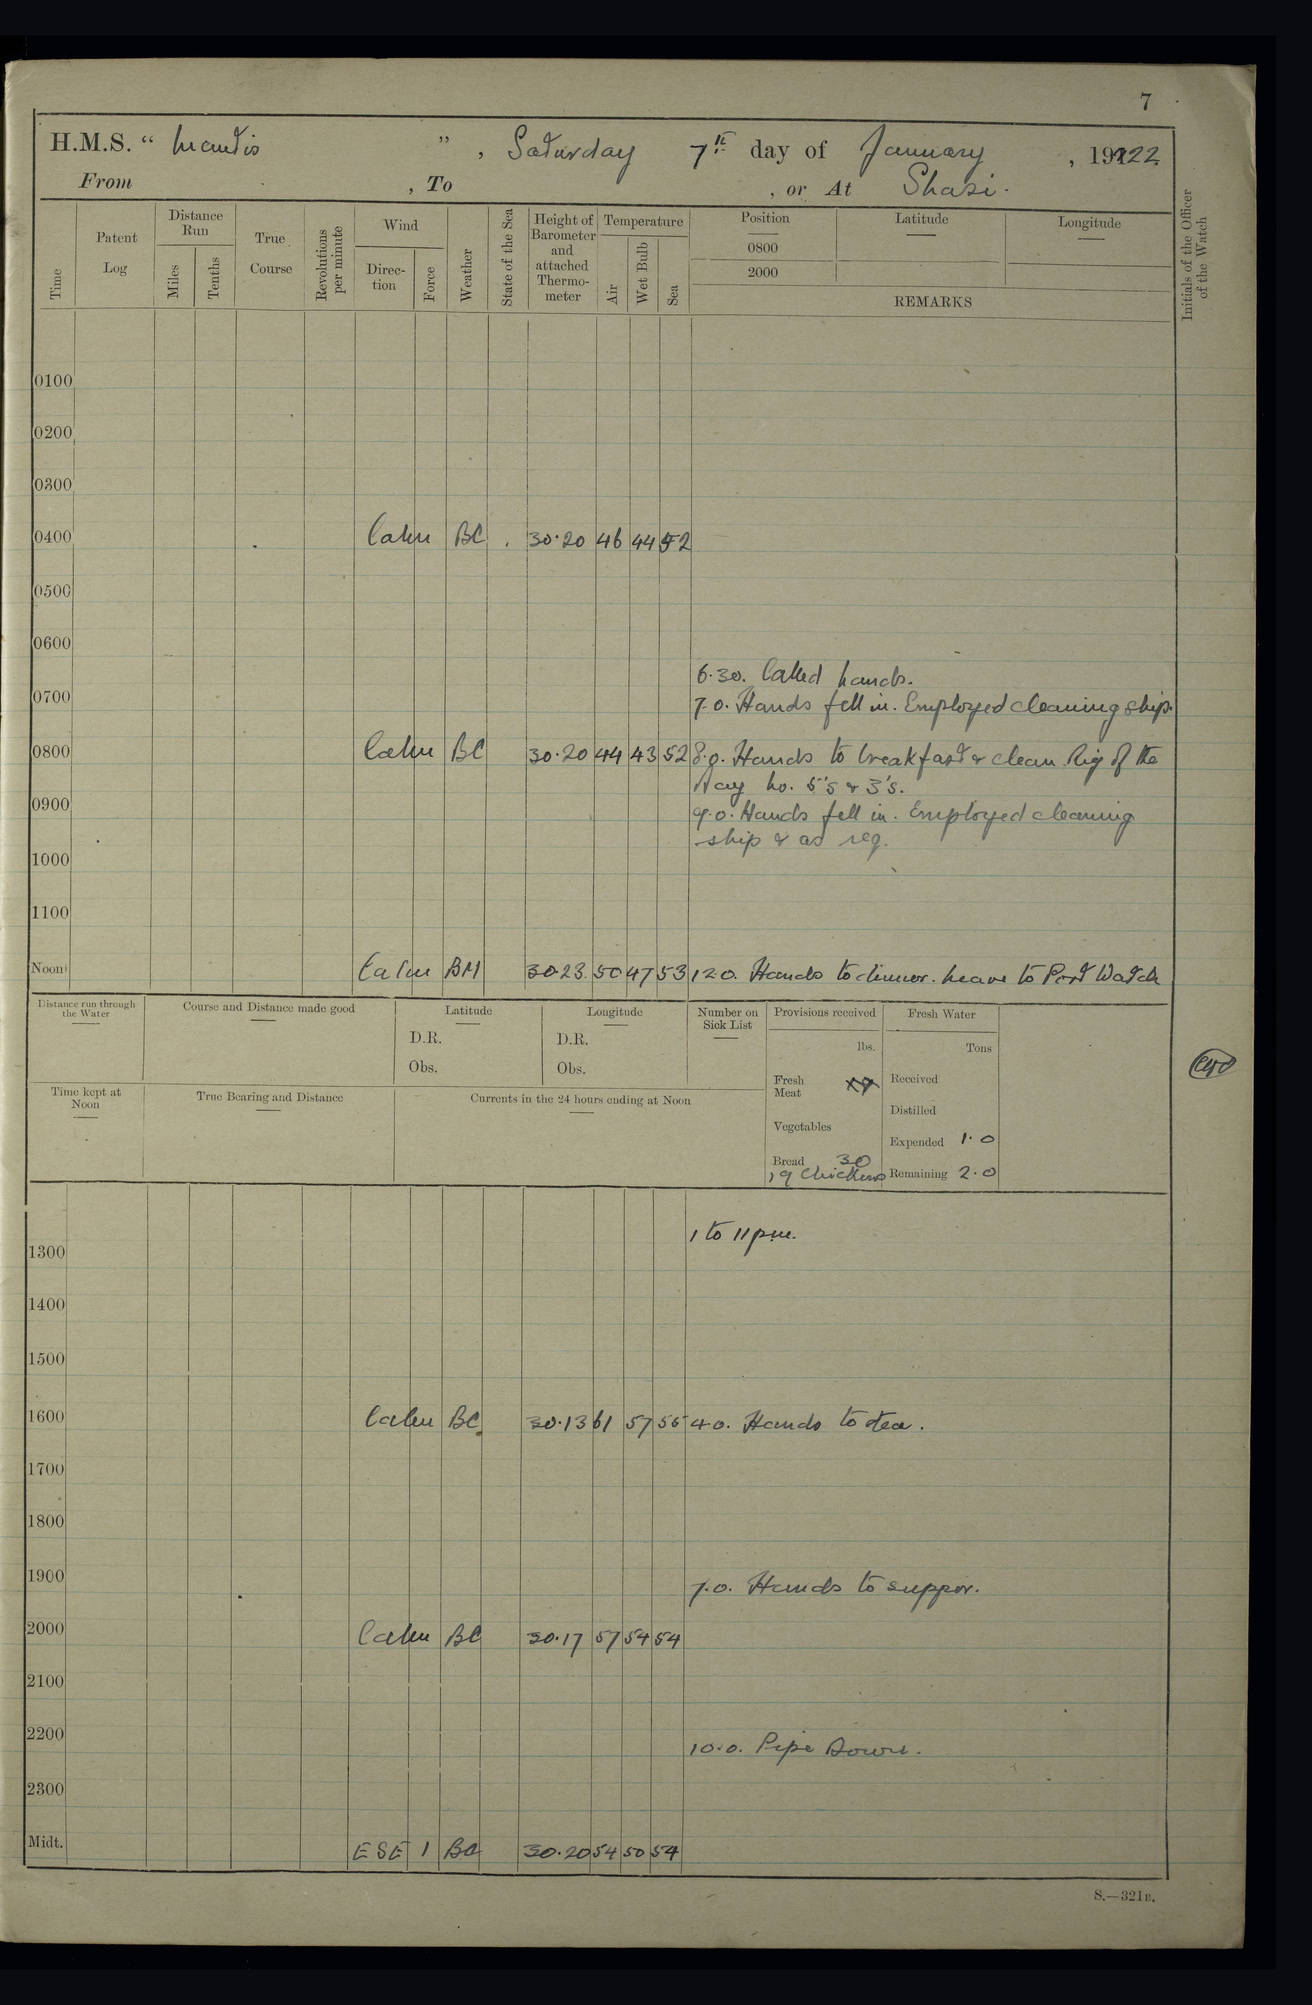 7
H.M.S. " Mantis ", Saturday 7th day of January, 1922
From , To , or At Shasi.
Time Patent Log Distance Run Miles Tenths True Course Revolutions per minute Wind Direction Force Weather State of the Sea Height of Barometer and attached Thermometer Temperature Air Wet Bulb Sea Position 0800 2000 Latitude Longitude REMARKS Initials of the Officer of the Watch
0100
0200
0300
0400 Calm BC 30.20 46 44 52
0500
0600
6.30. Called hands.
0700 7.0. Hands fell in. Employed cleaning ship.
0800 Calm BC 30.20 44 43 52 8.0. Hands to breakfast & clean. Rig of the
Day No. 5's & 3's.
0900 9.0. Hands fell in. Employed cleaning
ship & as req.
1000
1100
Noon Calm BM 30.23 50 47 53 12.0. Hands to dinner. Leave to Port Watch
Distance run through the Water Course and Distance made good Latitude Longitude Number on Sick List Provisions received Fresh Water
D.R. D.R. lbs. Tons
Obs. Obs.
Fresh Meat Received
Time kept at Noon True Bearing and Distance Currents in the 24 hours ending at Noon
Distilled
Vegetables
Expended 1.0
Bread 30
19 Chickens Remaining 2.0
1 to 11 pm.
1300
1400
1500
1600 Calm BC 30.13 61 57 55 4.0. Hands to tea.
1700
1800
1900 7.0. Hands to supper.
2000 Calm BC 30.17 57 54 54
2100
2200 10.0. Pipe Down.
2300
Midt. ESE 1 BC 30.20 54 50 54
S.—321B.